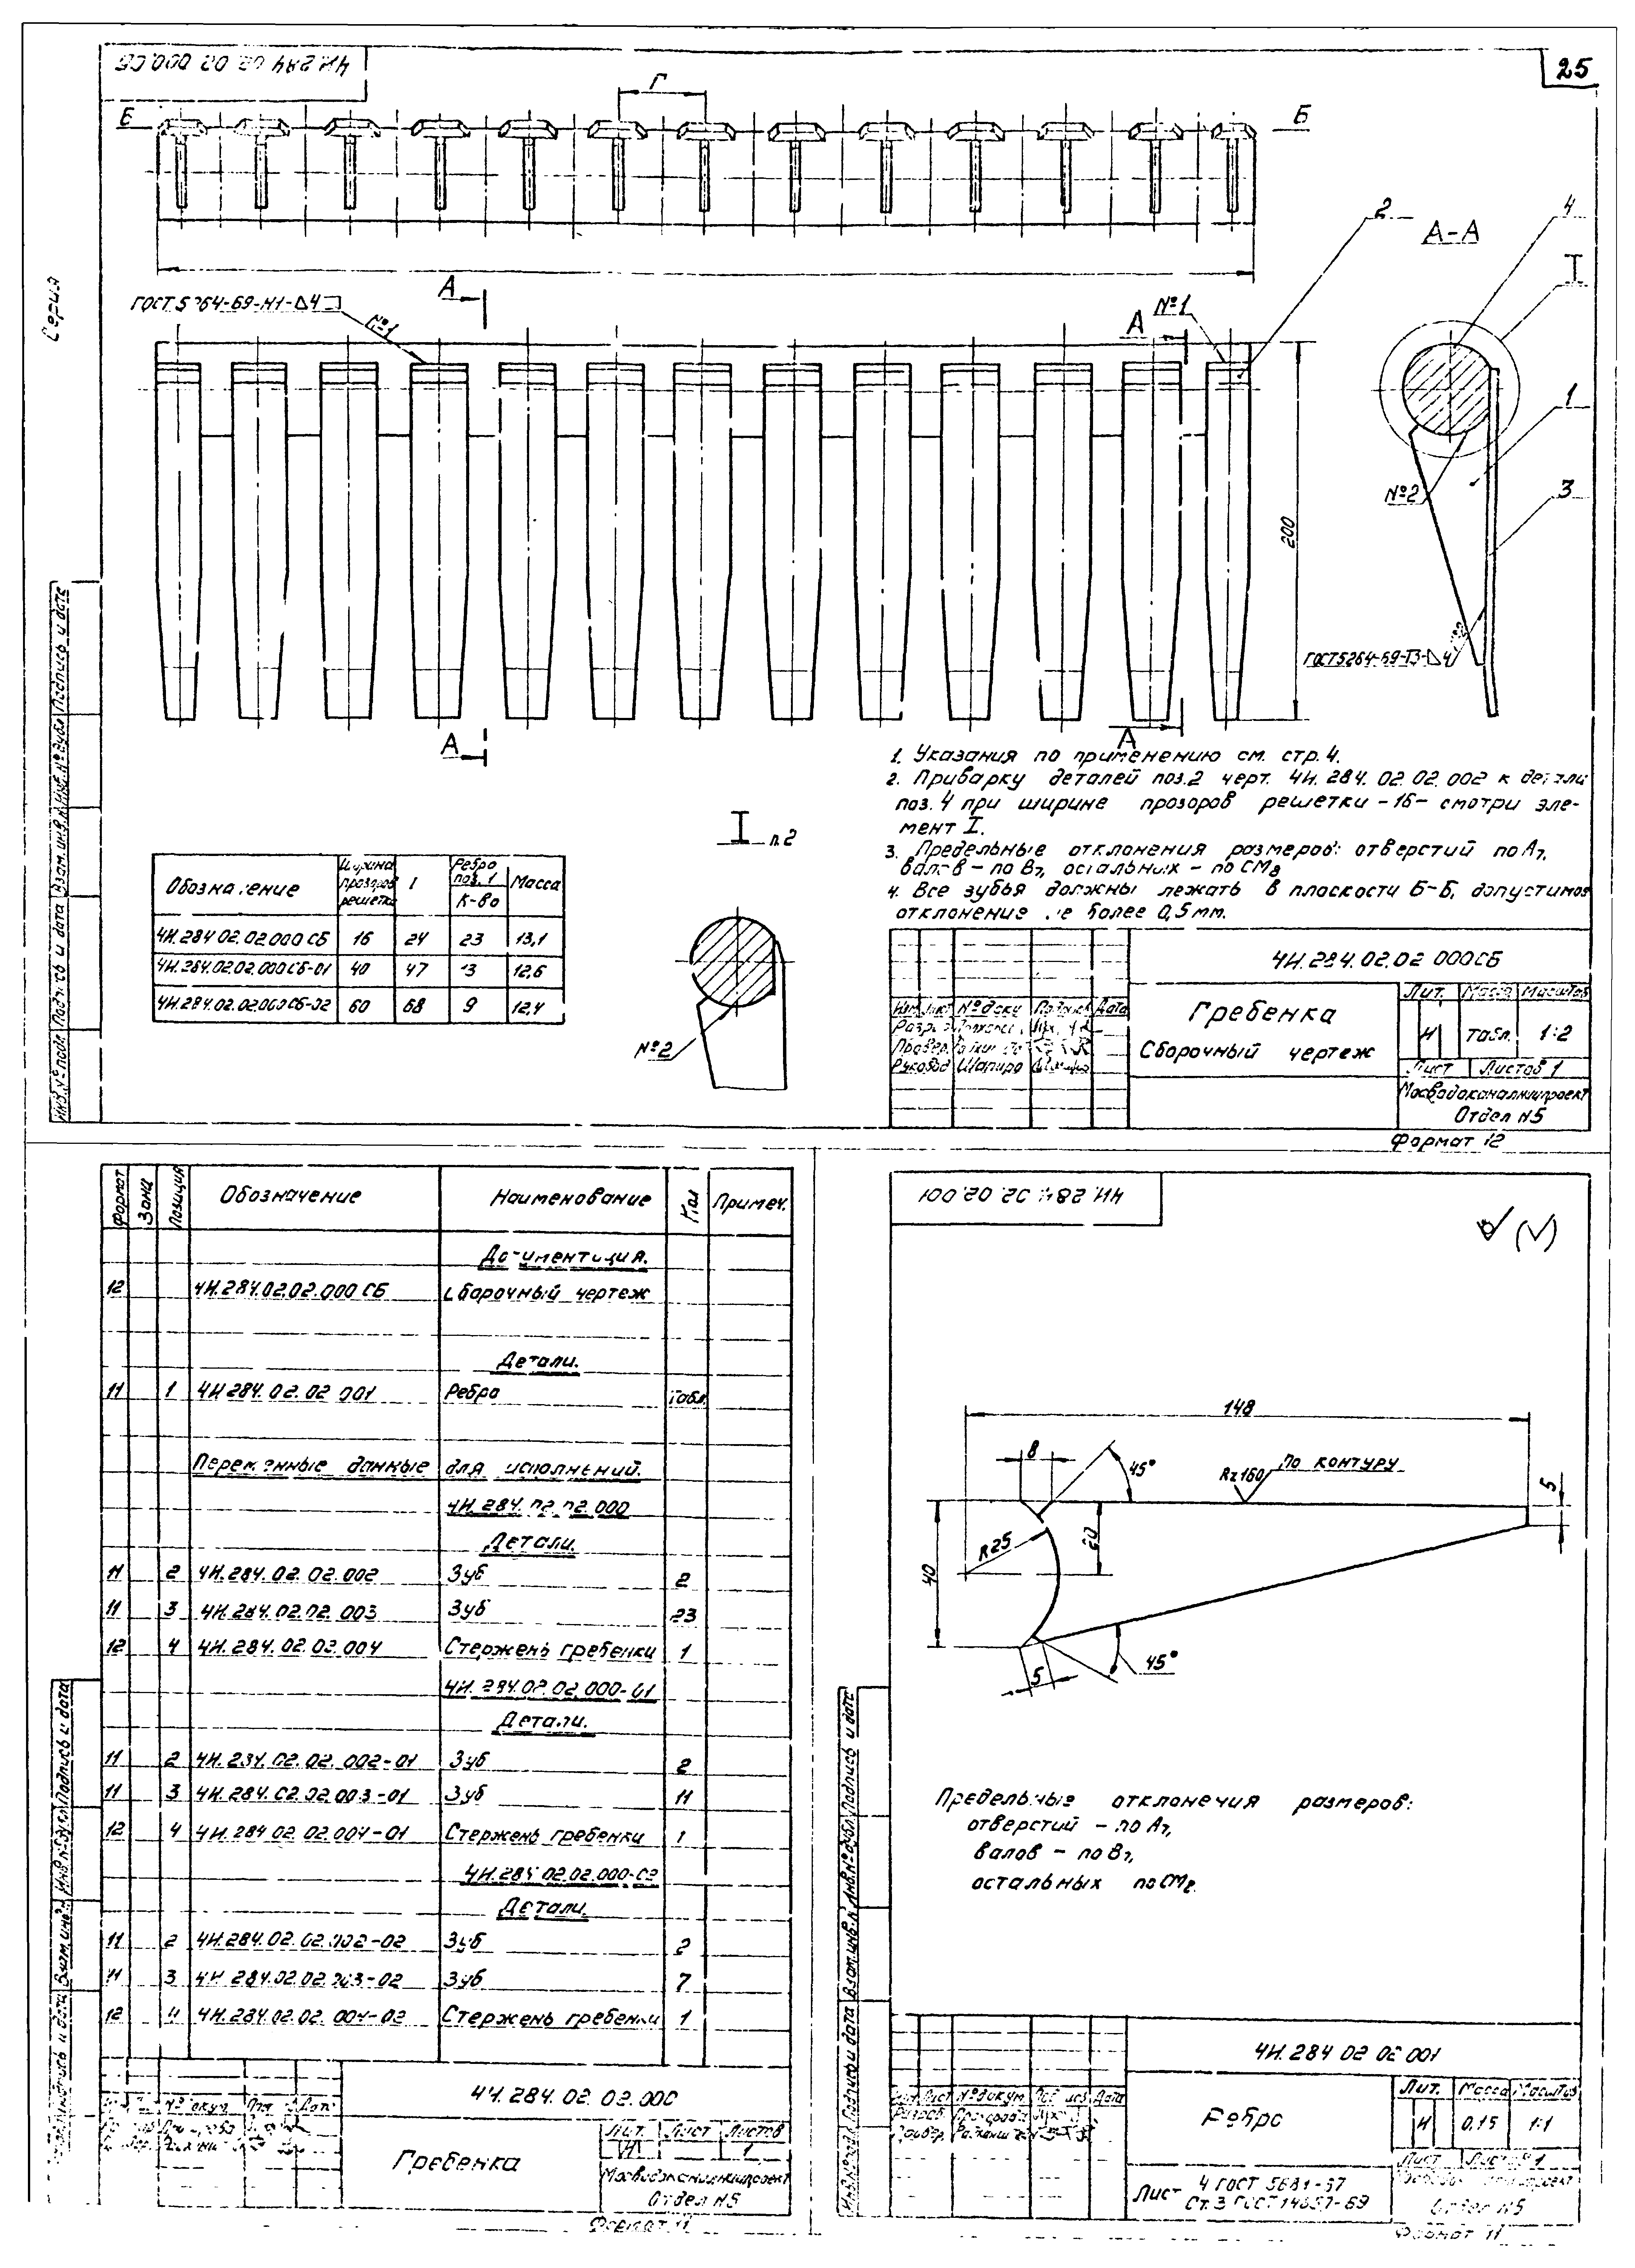 4И.284.02.02.000СБ
25
Серия
Г
Б
Б
2
А-А
4
I
А
№1
А
№1
1
№2
3
200
А
А
1. Указания по применению см. стр. 4.
2. Приварку деталей поз.2 черт. 4И.284.02.02.002 к детали
поз. 4 при ширине прозоров решетки -16- смотри эле-
мент I.
3. Предельные отклонения размеров: отверстий по А7,
валов - по В7, остальных - по СМ8
4. Все зубья должны лежать в плоскости Б-Б, допустимое
отклонение не более 0,5мм.
I
№2
Обозначение | Ширина прозоров решетки | Ребро поз. 1 К-во | Масса
4И.284.02.02.000СБ | 16 | 24 | 23 | 13,1
4И.284.02.02.000СБ-01 | 40 | 47 | 13 | 12,6
4И.284.02.02.000СБ-02 | 60 | 68 | 9 | 12,4
4И.284.02.02.000СБ
Гребенка
Сборочный чертеж
Лит. Масса Масштаб
И табл. 1:2
Лист Листов 1
Мосводоканалниипроект
Отдел №5
Руковод Шапиро
Формат 12
Формат Зона Позиция Обозначение Наименование Кол Примеч.
Документация.
12 4И.284.02.02.000 СБ Сборочный чертеж
Детали.
11 1 4И.284.02.02.001 Ребро Табл.
Переменные данные для исполнений.
4И.284.02.02.000
Детали.
11 2 4И.284.02.02.002 Зуб 2
11 3 4И.284.02.02.003 Зуб 23
12 4 4И.284.02.02.004 Стержень гребенки 1
4И.284.02.02.000-01
Детали.
11 2 4И.284.02.02.002-01 Зуб 2
11 3 4И.284.02.02.003-01 Зуб 11
12 4 4И.284.02.02.004-01 Стержень гребенки 1
4И.284.02.02.000-02
Детали.
11 2 4И.284.02.02.002-02 Зуб 2
11 3 4И.284.02.02.003-02 Зуб 7
12 4 4И.284.02.02.004-02 Стержень гребенки 1
4И.284.02.02.000
Гребенка
Лит. Лист Листов
И 1
Мосводоканалниипроект
Отдел №5
Формат 11
4И.284.02.02.001
148
8
45°
Rz160 По контуру
5
R25
20
40
5
45°
Предельные отклонения размеров:
отверстий - по А7,
валов - по В7,
остальных по СМ8
4И.284.02.02.001
Ребро
Лит. Масса Масштаб
И 0,15 1:1
Лист Листов 1
Лист 4 ГОСТ 5681-57
Ст.3 ГОСТ 14637-69
Отдел №5
Формат 11